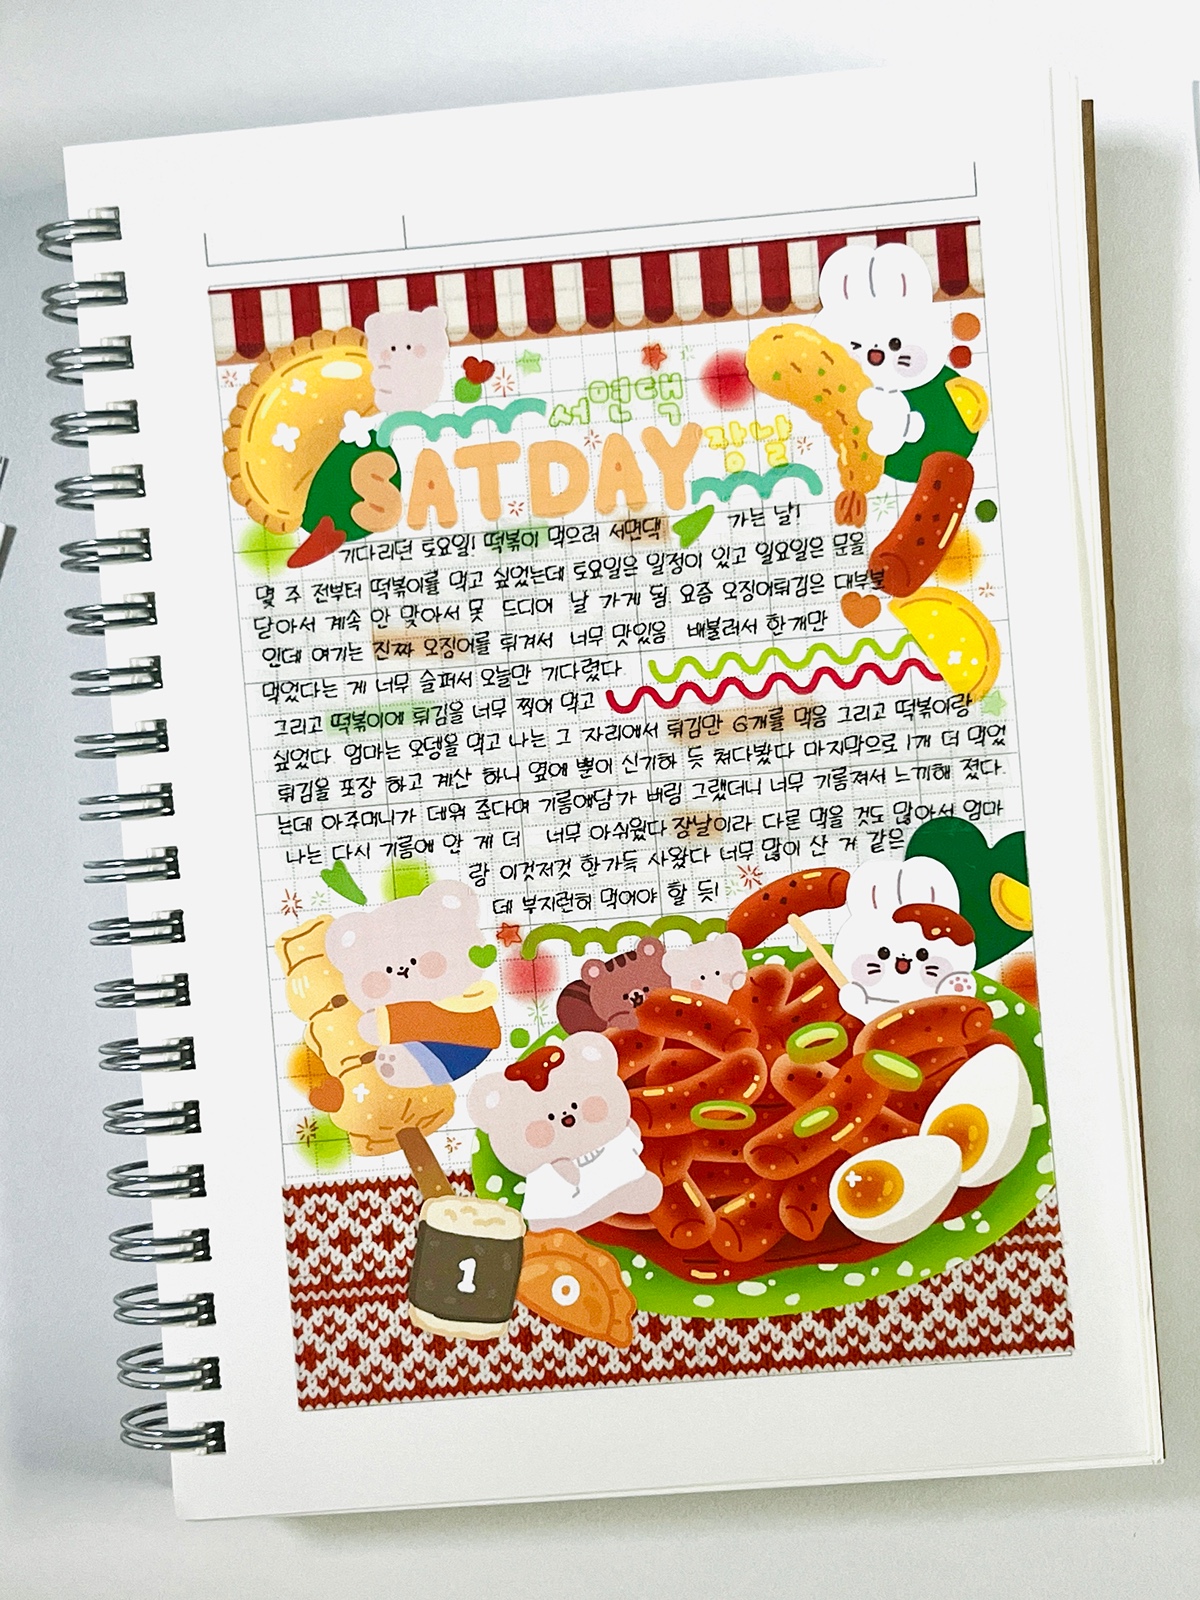 서면댁
SATDAY 장날
기다리던 토요일! 떡볶이 먹으러 서면댁 가는 날!
몇 주 전부터 떡볶이를 먹고 싶었는데 토요일은 일정이 있고 일요일은 문을
닫아서 계속 안 맞아서 못 드디어 날 가게 됨 요즘 오징어튀김은 대부분
인데 여기는 진짜 오징어를 튀겨서 너무 맛있음 배불러서 한개만
먹었다는 게 너무 슬퍼서 오늘만 기다렸다
그리고 떡볶이에 튀김을 너무 찍어 먹고
싶었다. 엄마는 오뎅을 먹고 나는 그 자리에서 튀김만 6개를 먹음 그리고 떡볶이랑
튀김을 포장 하고 계산 하니 옆에 뿐이 신기하 듯 쳐다봤다 마지막으로 1개 더 먹었
는데 아주머니가 데워 준다며 기름에담가 버림 그랬더니 너무 기름져서 느끼해 졌다.
나는 다시 기름에 안 게 더 너무 아쉬웠다 장날이라 다른 먹을 것도 많아서 엄마
랑 이것저것 한가득 사왔다 너무 많이 산 거 같은
데 부지런히 먹어야 할 듯!
1 0